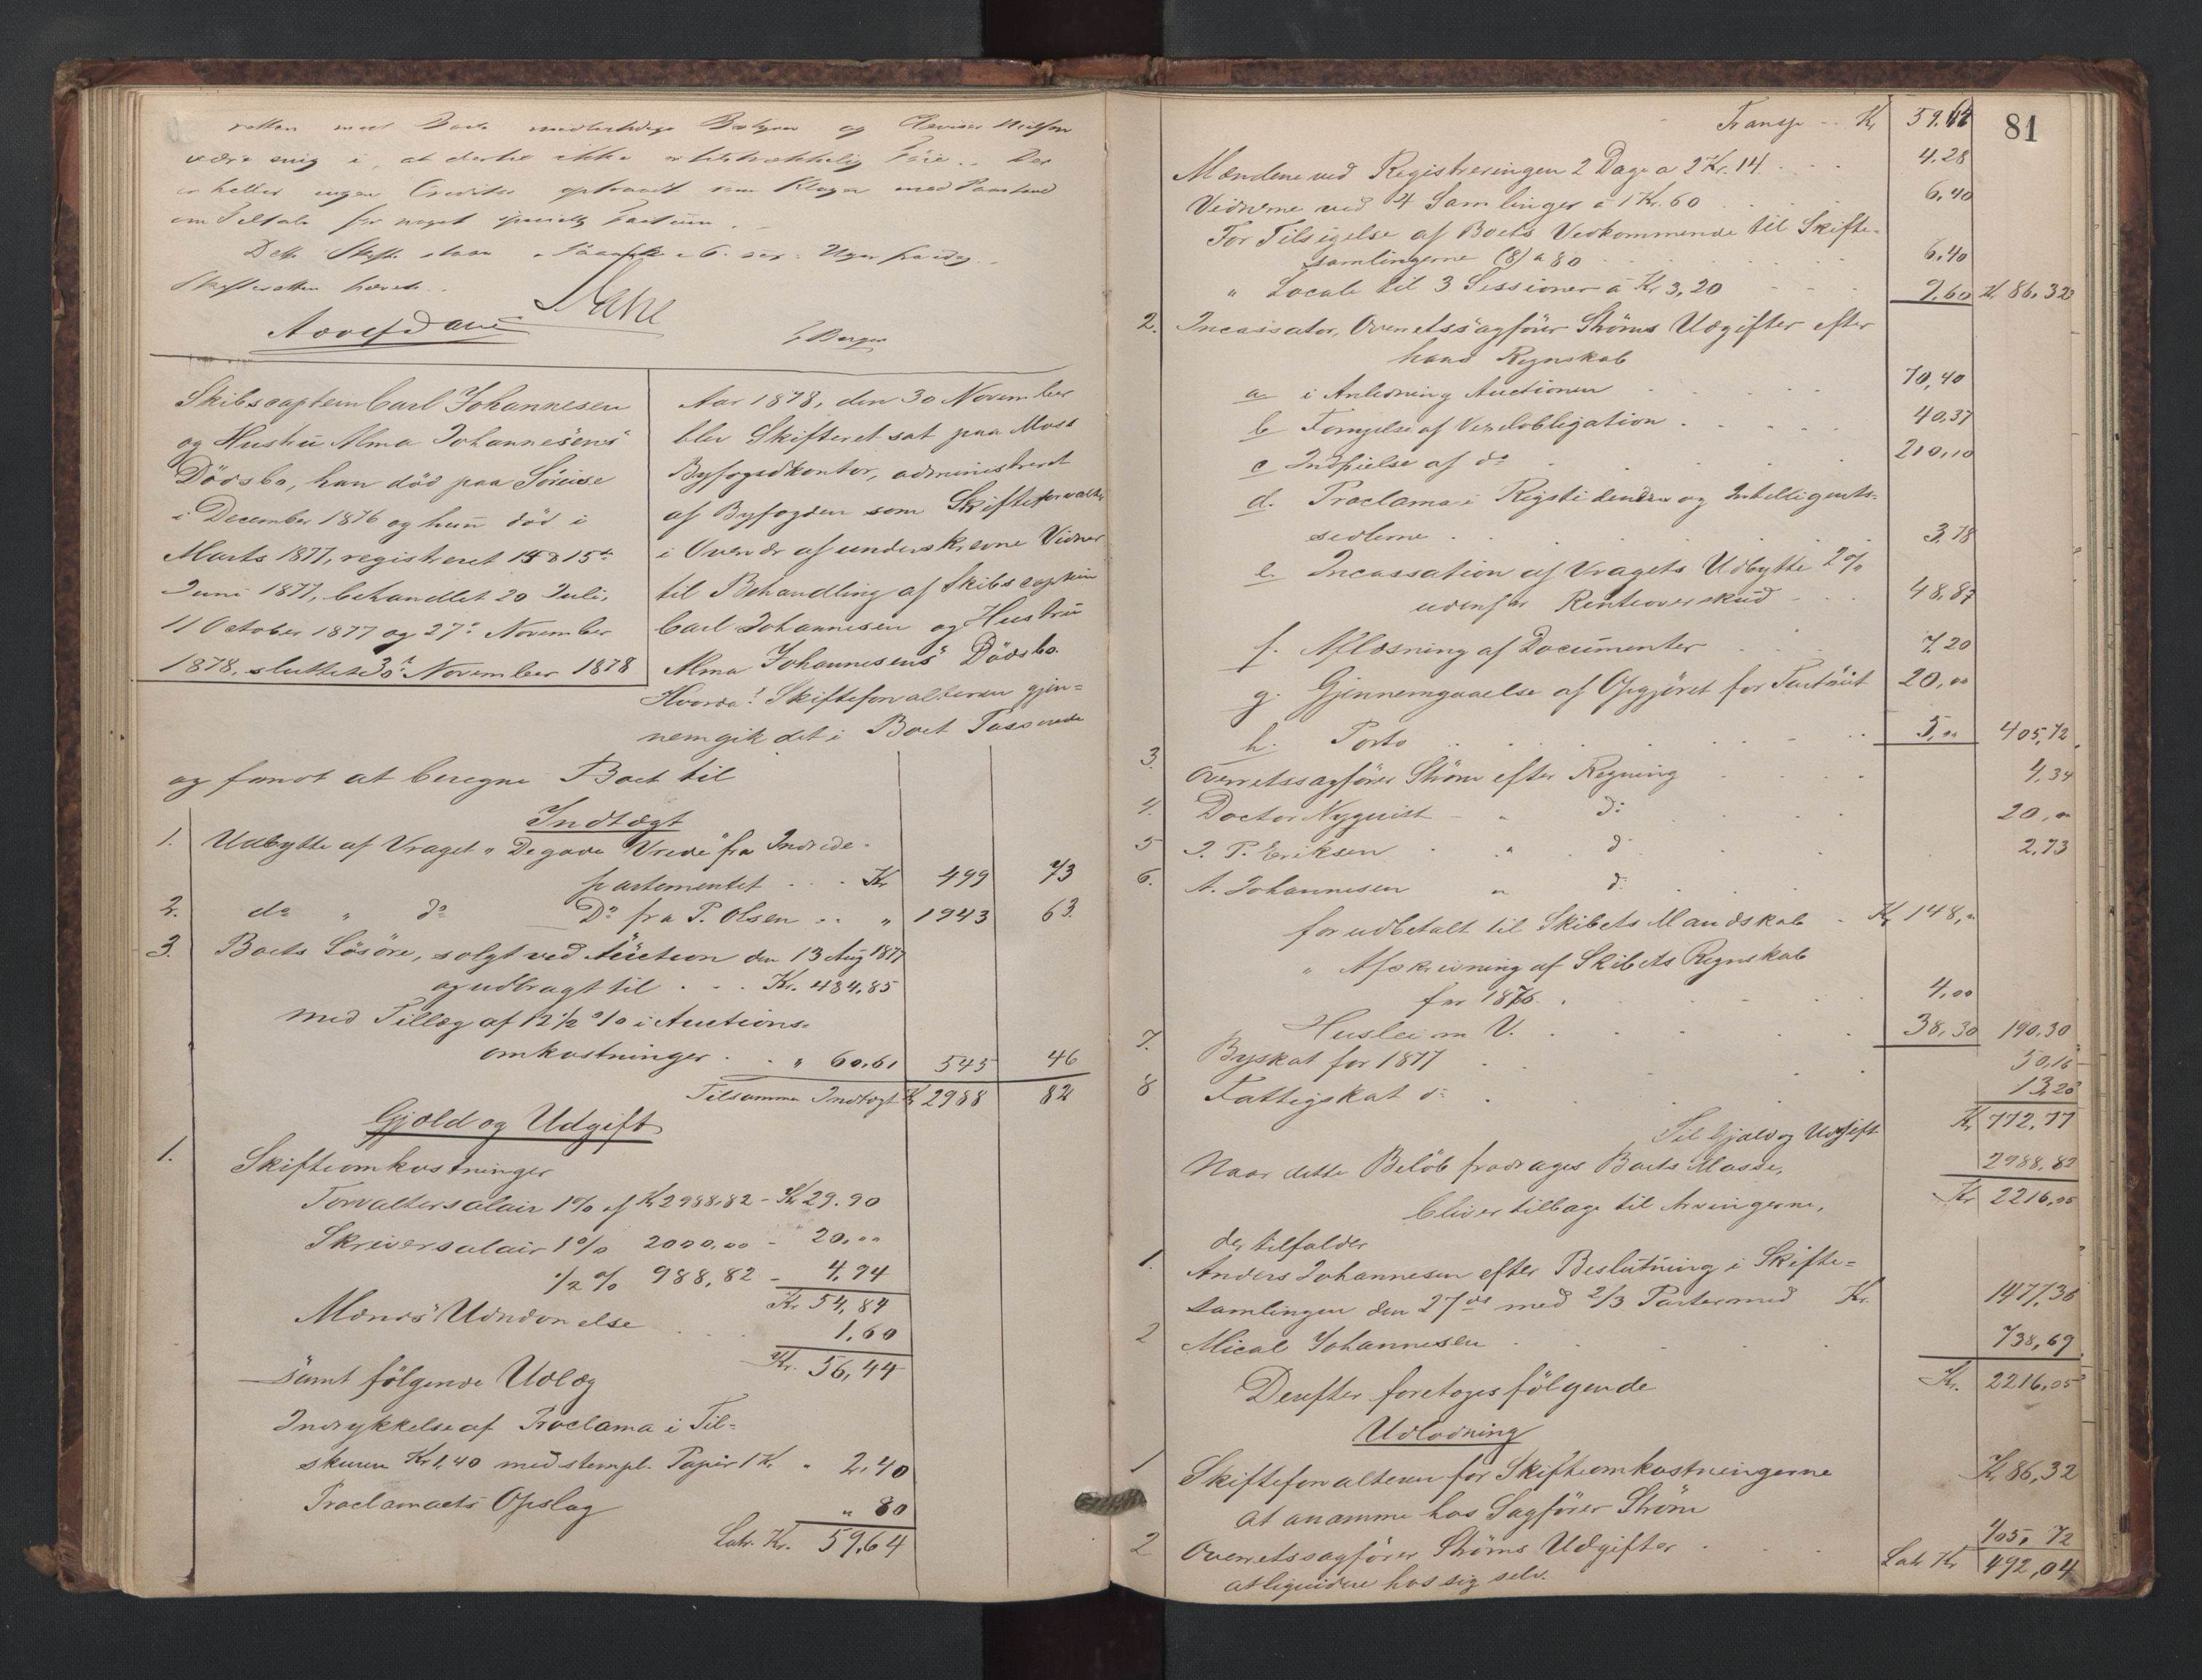 retten med Boets
være enig i, at dertil ikke er tilstrækkelig Føie. Der
er heller ingen Creditor optraadt som Klager med Paastand
om Tiltale for noget specielt Factum.
Skifteretten hævet.
Skibscaptein Carl Johannesen
og Hustru Alma Johannesens
Dödsbo, han död paa Söreise
i December 1876 og hun död i
Marts 1877, registreret 15
Juni 1877, behandlet 20 Juli,
11 October 1877 og 27 November
1878, sluttet 30 November 1878
Aar 1878, den 30 November
blev Skifteret sat paa Moss
Byfogedkontor, administreret
af Byfogden som Skifteforvalter
i Overvær af underskrevne Vidner
til Behandling af Skibscaptein
Carl Johannesen og Hustru
Alma Johannesens Dödsbo.
Hvorda! Skifteforvalteren gjen=
nemgik det i Boet Passerede
og fandt at beregne Boet til
Indtægt
1. Udbytte af Vraget "De gode Venner" fra Indrede-
partementet . . . Kr 499 73
2. do " do Do fra P. Olsen .. " 1943 63.
3. Boets Lösöre, solgt ved Auction den 13 Aug 1877
og udbragt til . . . Kr. 484,85
med Tillæg af 12 1/2 % i Auctions-
omkostninger . . " 60,61 545 46
Tilsammen Indtægt Kr 2988 82
Gjæld og Udgift
1. Skifteomkostninger
Forvaltersalair 1% af Kr 2988,82 - Kr 29.90
Skriversalair 1% 2000,00 - 20,00
1/2 % 988,82 - 4,94
Kr. 54,84
. . . 1,60
Kr. 56,44
samt fölgende Udlæg
Indrykkelse af Proclama i Til-
skuen Kr 1,40 med stempl. Papir 1 Kr. " 2,40
Proclamaets Opslag " 80
Lat. Kr. 59,64
81
Transp .. Kr 59.64
Mændene ved Registreringen 2 Dage a 2 Kr. 14 . . . 4,28
Vidnerne ved 4 Samlinger a 1 Kr. 60 . . . 6,40
For Tilsigelse af Boets Vedkommende til Skifte-
samlingerne (8) a 80 . . . 6,40
" Locale til 3 Sessioner a Kr 3,20 . . . 9,60 Kr 86,32
2. Incassator, Overretssagförer Ströms Udgifter efter
hans Regnskab
a i Anledning Auctionen . . . 70,40
b Fornyelse af Vexelobligation . . . 40,37
c Indfrielse af do . . . 210,10
d. Proclama i Rigstidenden og Intelligents-
sedlerne . . . 3,78
e. Incassation af Vragets Udbytte 2%
udenfor Renteoverskud . . . 48,87
f. Aflæsning af Documenter . . . 7,20
g. Gjennemgaaelse af Opgjöret for 20,00
h. Porto . . . 5,00 405,72
3. Overretssagförer Ström efter Regning . . . 4,34
4. Doctor Nyquist - " do . . . 20,00
5 I. P. Eriksen . " do . . . 2,73
6. A. Johannesen " do . . .
for udbetalt til Skibets Mandskab . Kr 148,00
" Afskrivning af Skibets Regnskab
for 1876 . . . 4,00
Husleie m V. . . . 38,30 190,30
7. Byskat for 1877 . . . 50,16
8 Fattigskat do . . . 13,20
Til Gjæld og Udgift Kr 772,77
Naar dette Belöb fradrages Boets Masse, 2988,82
bliver tilbage til Arvingerne, Kr 2216,05
der tilfalder
1. Anders Johannesen efter Beslutning i Skifte=
samlingen den 27 ds med 2/3 Parter med Kr. 1477,36
2 Mical Johannesen . . . 738,69
Kr. 2216,05
Derefter foretoges fölgende
Udlodning
1 Skifteforvalteren for Skifteomkostningerne Kr 86,32
at anamme hos Sagförer Ström
2 Overretssagförer Ströms Udgifter . . . 405,72
at liquidere hos sig selv. Lat Kr 492,04